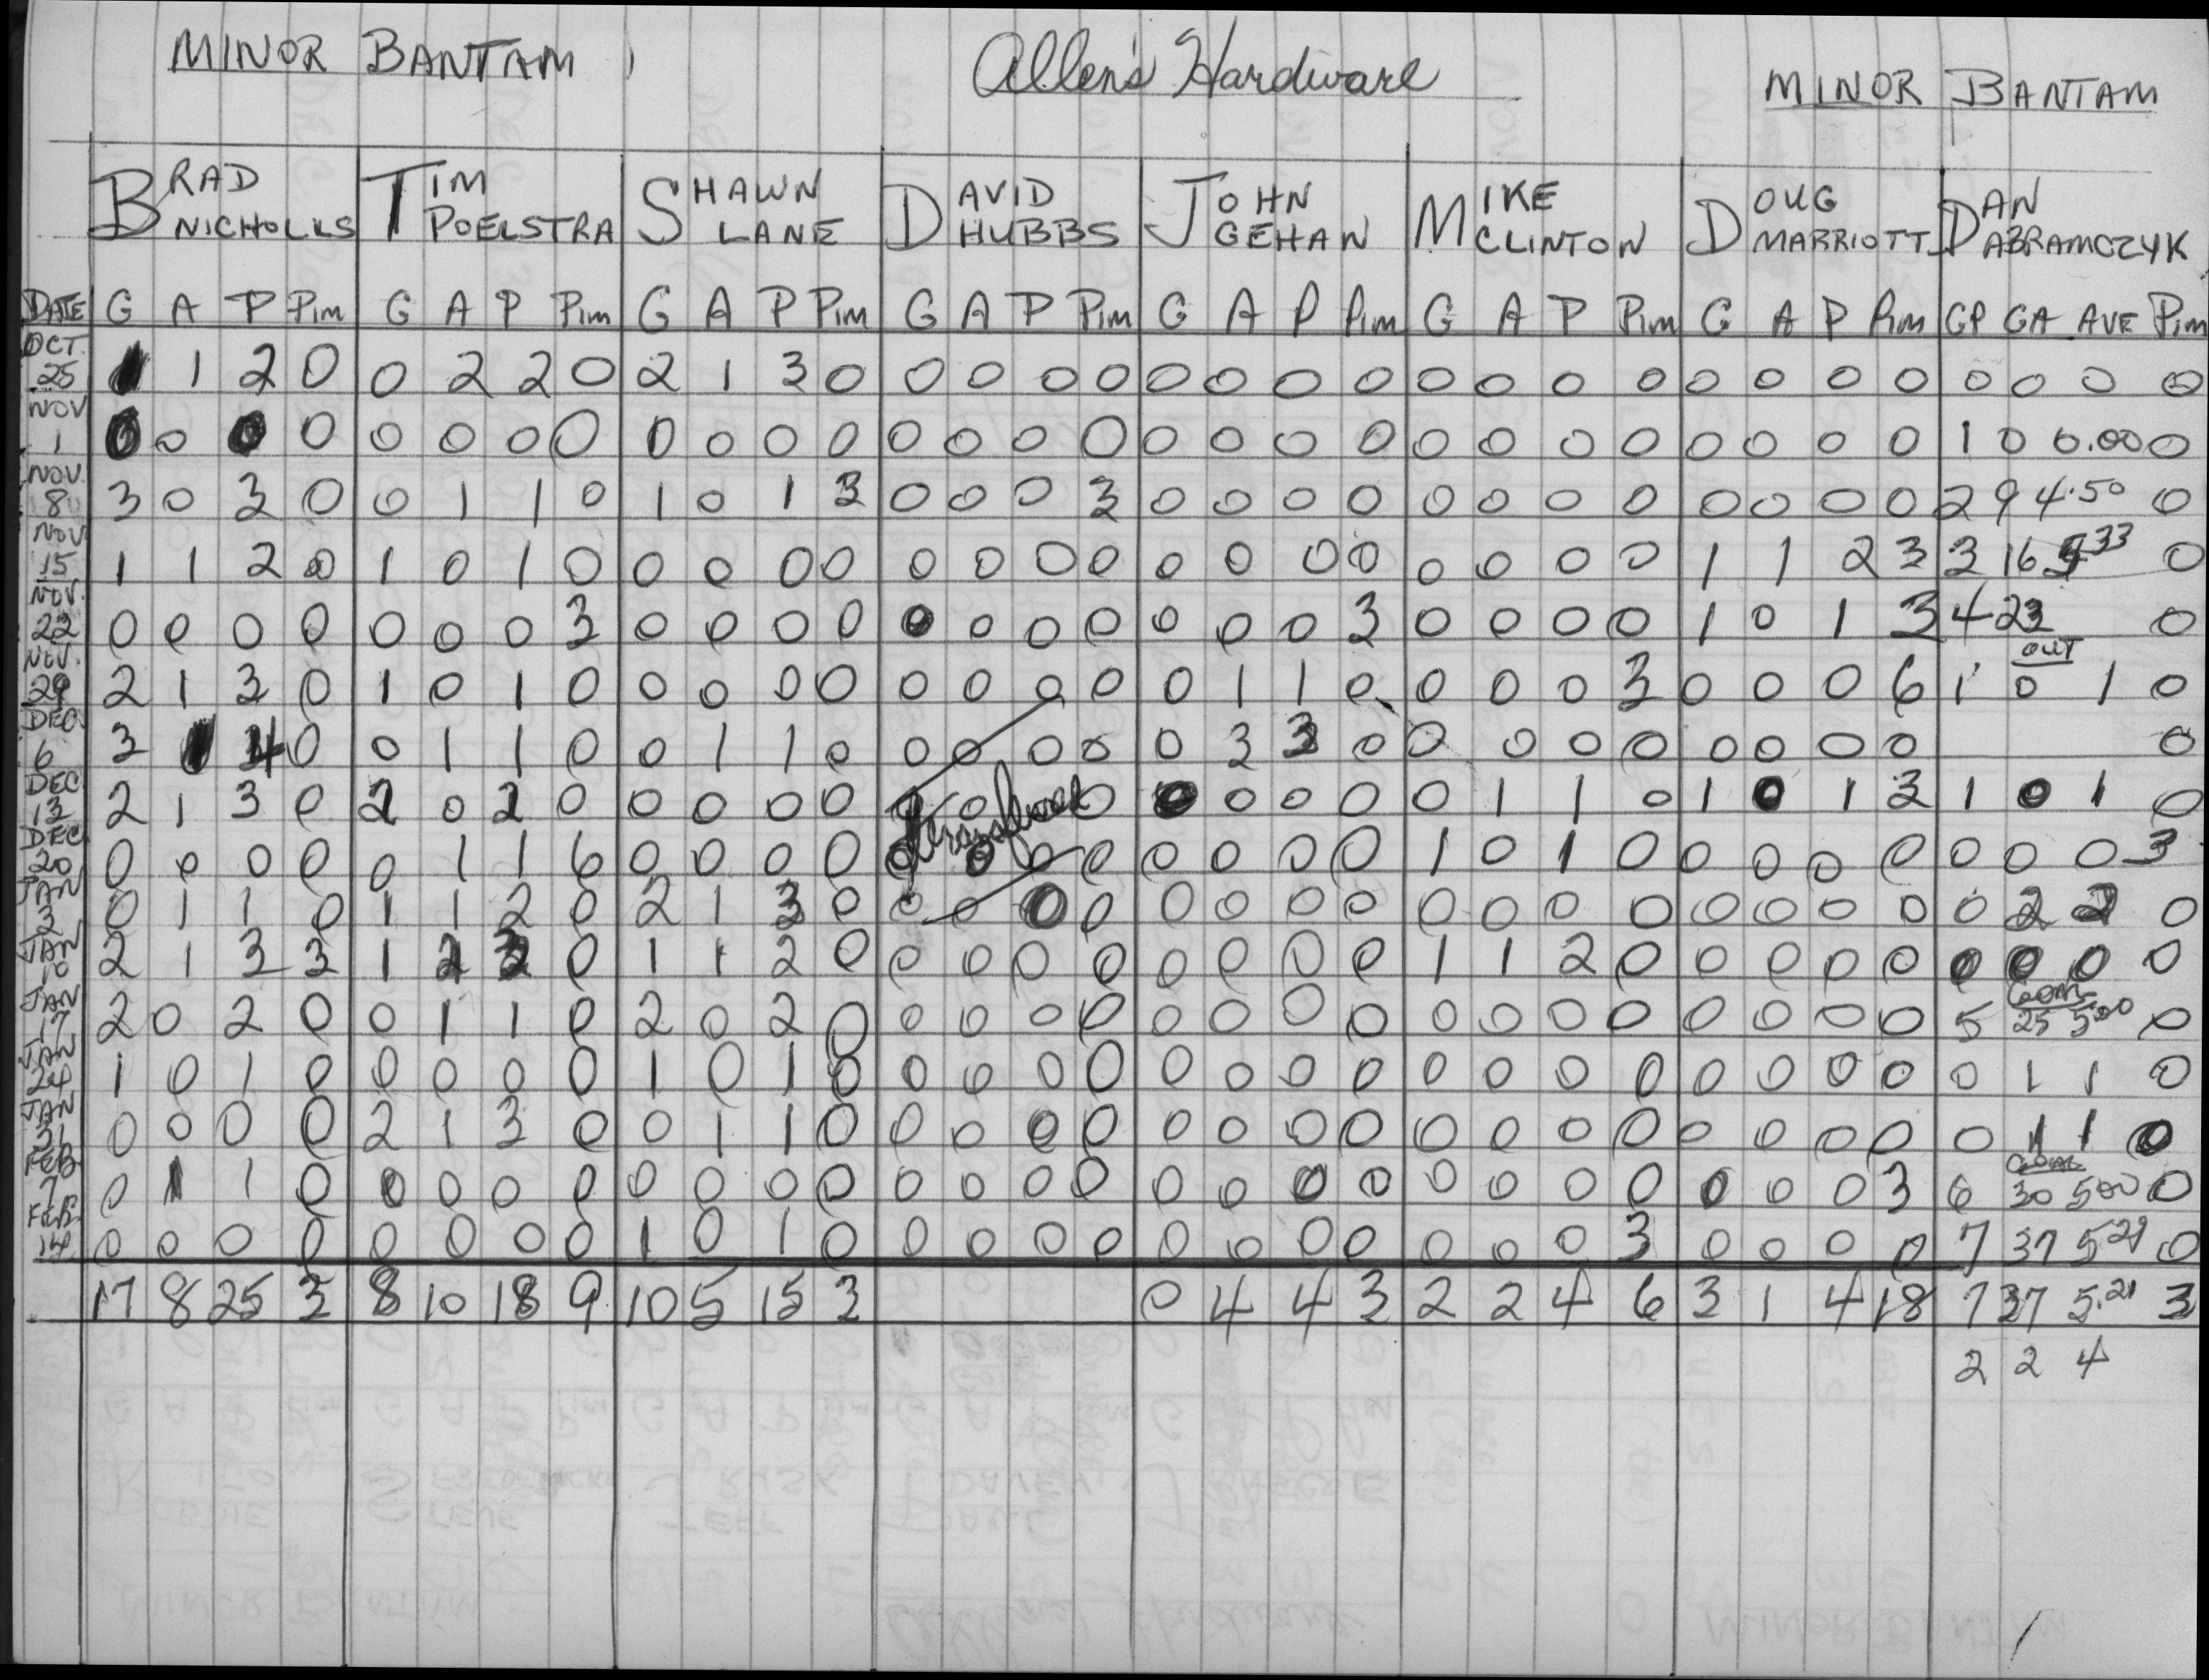 MINOR BANTAM Allen's Hardware MINOR BANTAM
BRAD NICHOLLS TIM POELSTRA SHAWN LANE DAVID HUBBS JOHN GEHAN MIKE CLINTON DOUG MARRIOTT DAN ABRAMCZYK
DATE G A P Pim G A P Pim G A P Pim G A P Pim G A P Pim G A P Pim G A P Pim GP GA AVE Pim
OCT. 25 1 1 2 0 0 2 2 0 2 1 3 0 0 0 0 0 0 0 0 0 0 0 0 0 0 0 0 0 0 0 0 0
NOV 1 0 0 0 0 0 0 0 0 0 0 0 0 0 0 0 0 0 0 0 0 0 0 0 0 0 0 0 0 1 0 0.00 0
NOV. 8 3 0 3 0 0 1 1 0 1 0 1 3 0 0 0 3 0 0 0 0 0 0 0 0 0 0 0 0 2 9 4.50 0
NOV 15 1 1 2 0 1 0 1 0 0 0 0 0 0 0 0 0 0 0 0 0 0 0 0 0 1 1 2 3 3 16 5 33 0
NOV. 22 0 0 0 0 0 0 0 3 0 0 0 0 0 0 0 0 0 0 0 3 0 0 0 0 1 0 1 3 4 23 0
NOV. 29 2 1 3 0 1 0 1 0 0 0 0 0 0 0 0 0 0 1 1 0 0 0 0 3 0 0 0 6 OUT 1 0 1 0
DEC 6 3 1 4 0 0 1 1 0 0 1 1 0 0 0 0 0 0 3 3 0 0 0 0 0 0 0 0 0 0
DEC 13 2 1 3 0 2 0 2 0 0 0 0 0 0 0 0 0 0 0 0 0 1 1 0 1 0 1 3 1 0 1 0
DEC 20 0 0 0 0 0 1 1 6 0 0 0 0 0 0 0 0 0 0 0 0 1 0 1 0 0 0 0 0 0 0 0 3
JAN 3 0 1 1 0 1 1 2 0 2 1 3 0 0 0 0 0 0 0 0 0 0 0 0 0 0 0 0 0 0 2 2 0
JAN 10 2 1 3 3 1 2 3 0 1 1 2 0 0 0 0 0 0 0 0 0 1 1 2 0 0 0 0 0 0 0 0 0
JAN 17 2 0 2 0 0 1 1 0 2 0 2 0 0 0 0 0 0 0 0 0 0 0 0 0 0 0 0 0 5 25 5 00 0
JAN 24 1 0 1 0 0 0 0 0 1 0 1 0 0 0 0 0 0 0 0 0 0 0 0 0 0 0 0 0 0 1 1 0
JAN 31 0 0 0 0 2 1 3 0 0 1 1 0 0 0 0 0 0 0 0 0 0 0 0 0 0 0 0 0 0 1 1 0
FEB 7 0 1 1 0 0 0 0 0 0 0 0 0 0 0 0 0 0 0 0 0 0 0 0 0 0 0 0 3 6 30 5 00 0
FEB. 14 0 0 0 0 0 0 0 0 1 0 1 0 0 0 0 0 0 0 0 0 0 0 0 3 0 0 0 0 7 37 5 29 0
17 8 25 3 8 10 18 9 10 5 15 3 0 4 4 3 2 2 4 6 3 1 4 18 7 37 5.21 3
2 2 4